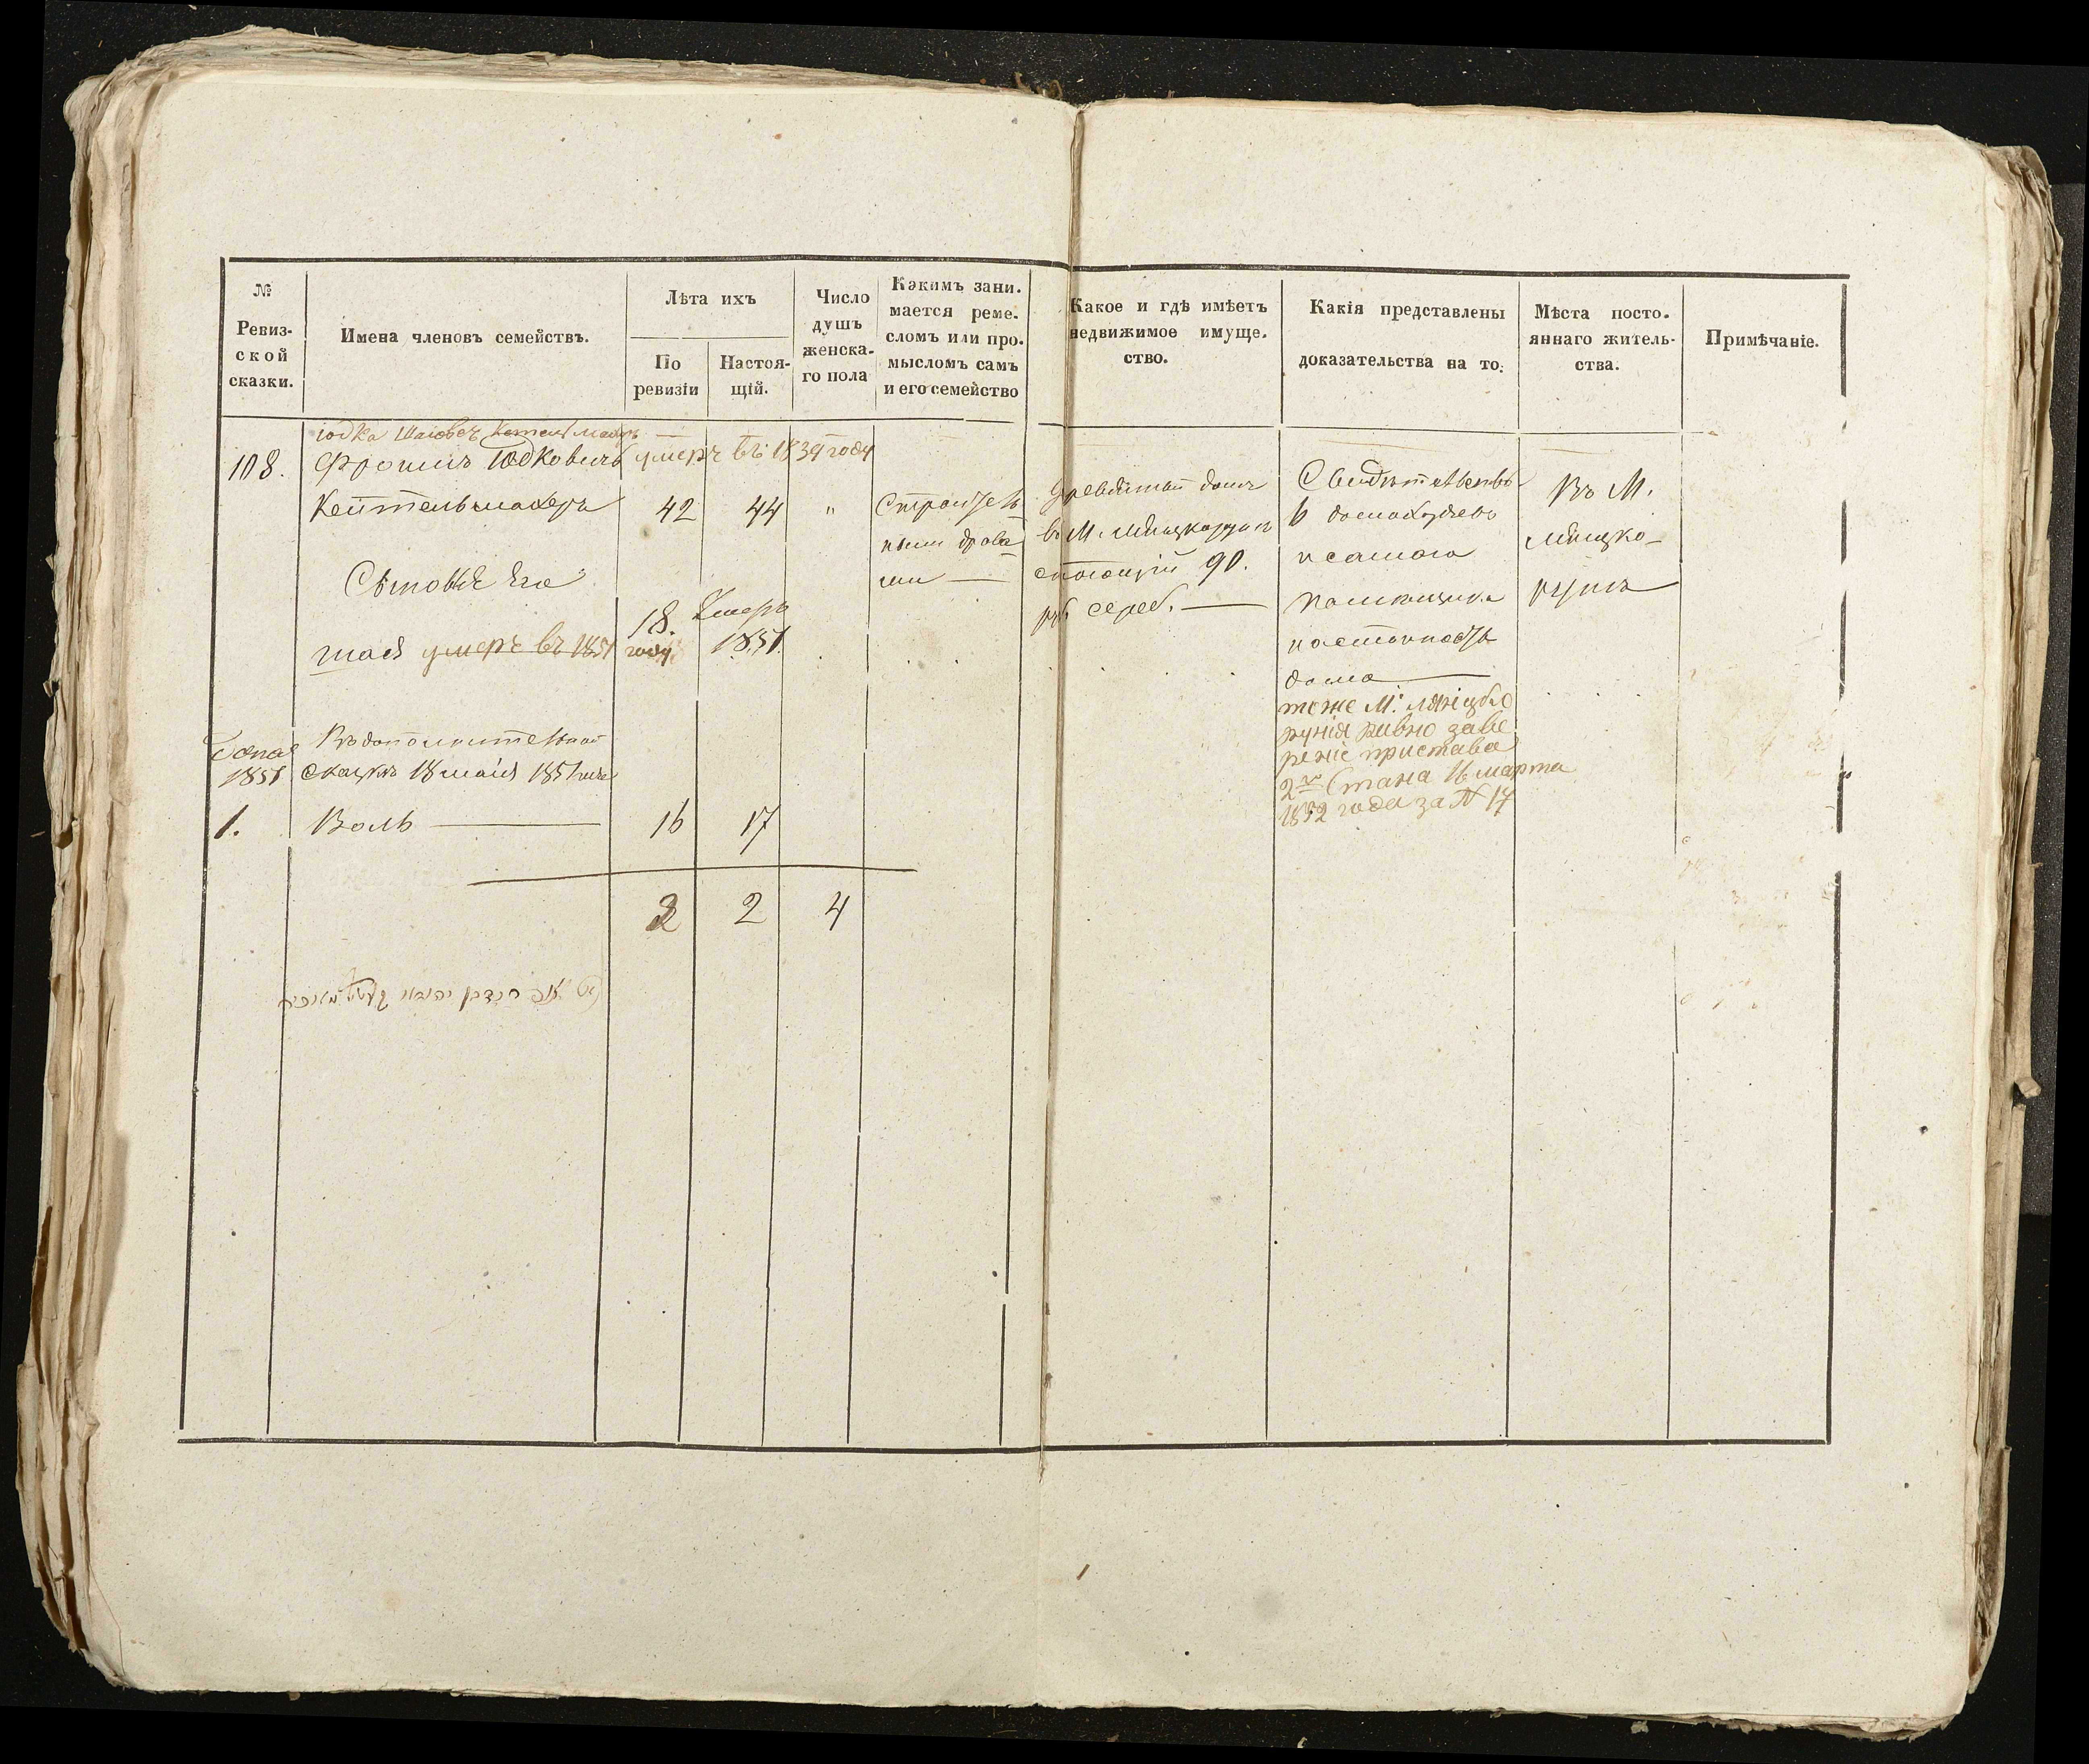 №
Ревиз-
ской
сказки.
Имена членовъ семействъ.
Лѣта ихъ
По
ревизіи
Настоя-
щій.
Число
душъ
женска-
го пола
Какимъ зани-
мается реме-
сломъ или про-
мысломъ самъ
и его семейство
Какое и гдѣ имѣетъ
недвижимое имуще-
ство.
Какія представлены
доказательства на то.
Мѣста посто-
яннаго житель-
ства.
Примѣчаніе.
108.
Фроимъ Юдковичъ умеръ въ 1834 году
Кейтельмахеръ
42
44
"
Строитель
ными дрова-
ми
Деревянный домъ
въ М.
стоющій 90.
руб. сереб.
Свидѣтельство
6 домохозяевъ
и самого
помѣщика
на стоимость
дома
Въ М.
Сыновья его
умеръ въ 1851 году
18.
Умеръ
1851.
тоже М:
ровно завѣ
реніе пристава
2го Стана 16 марта
1852 года за № 17
1851
Въ дополнительной
сказкѣ 18 маія 1851 года
1.
Воль
16
17
2
2
4